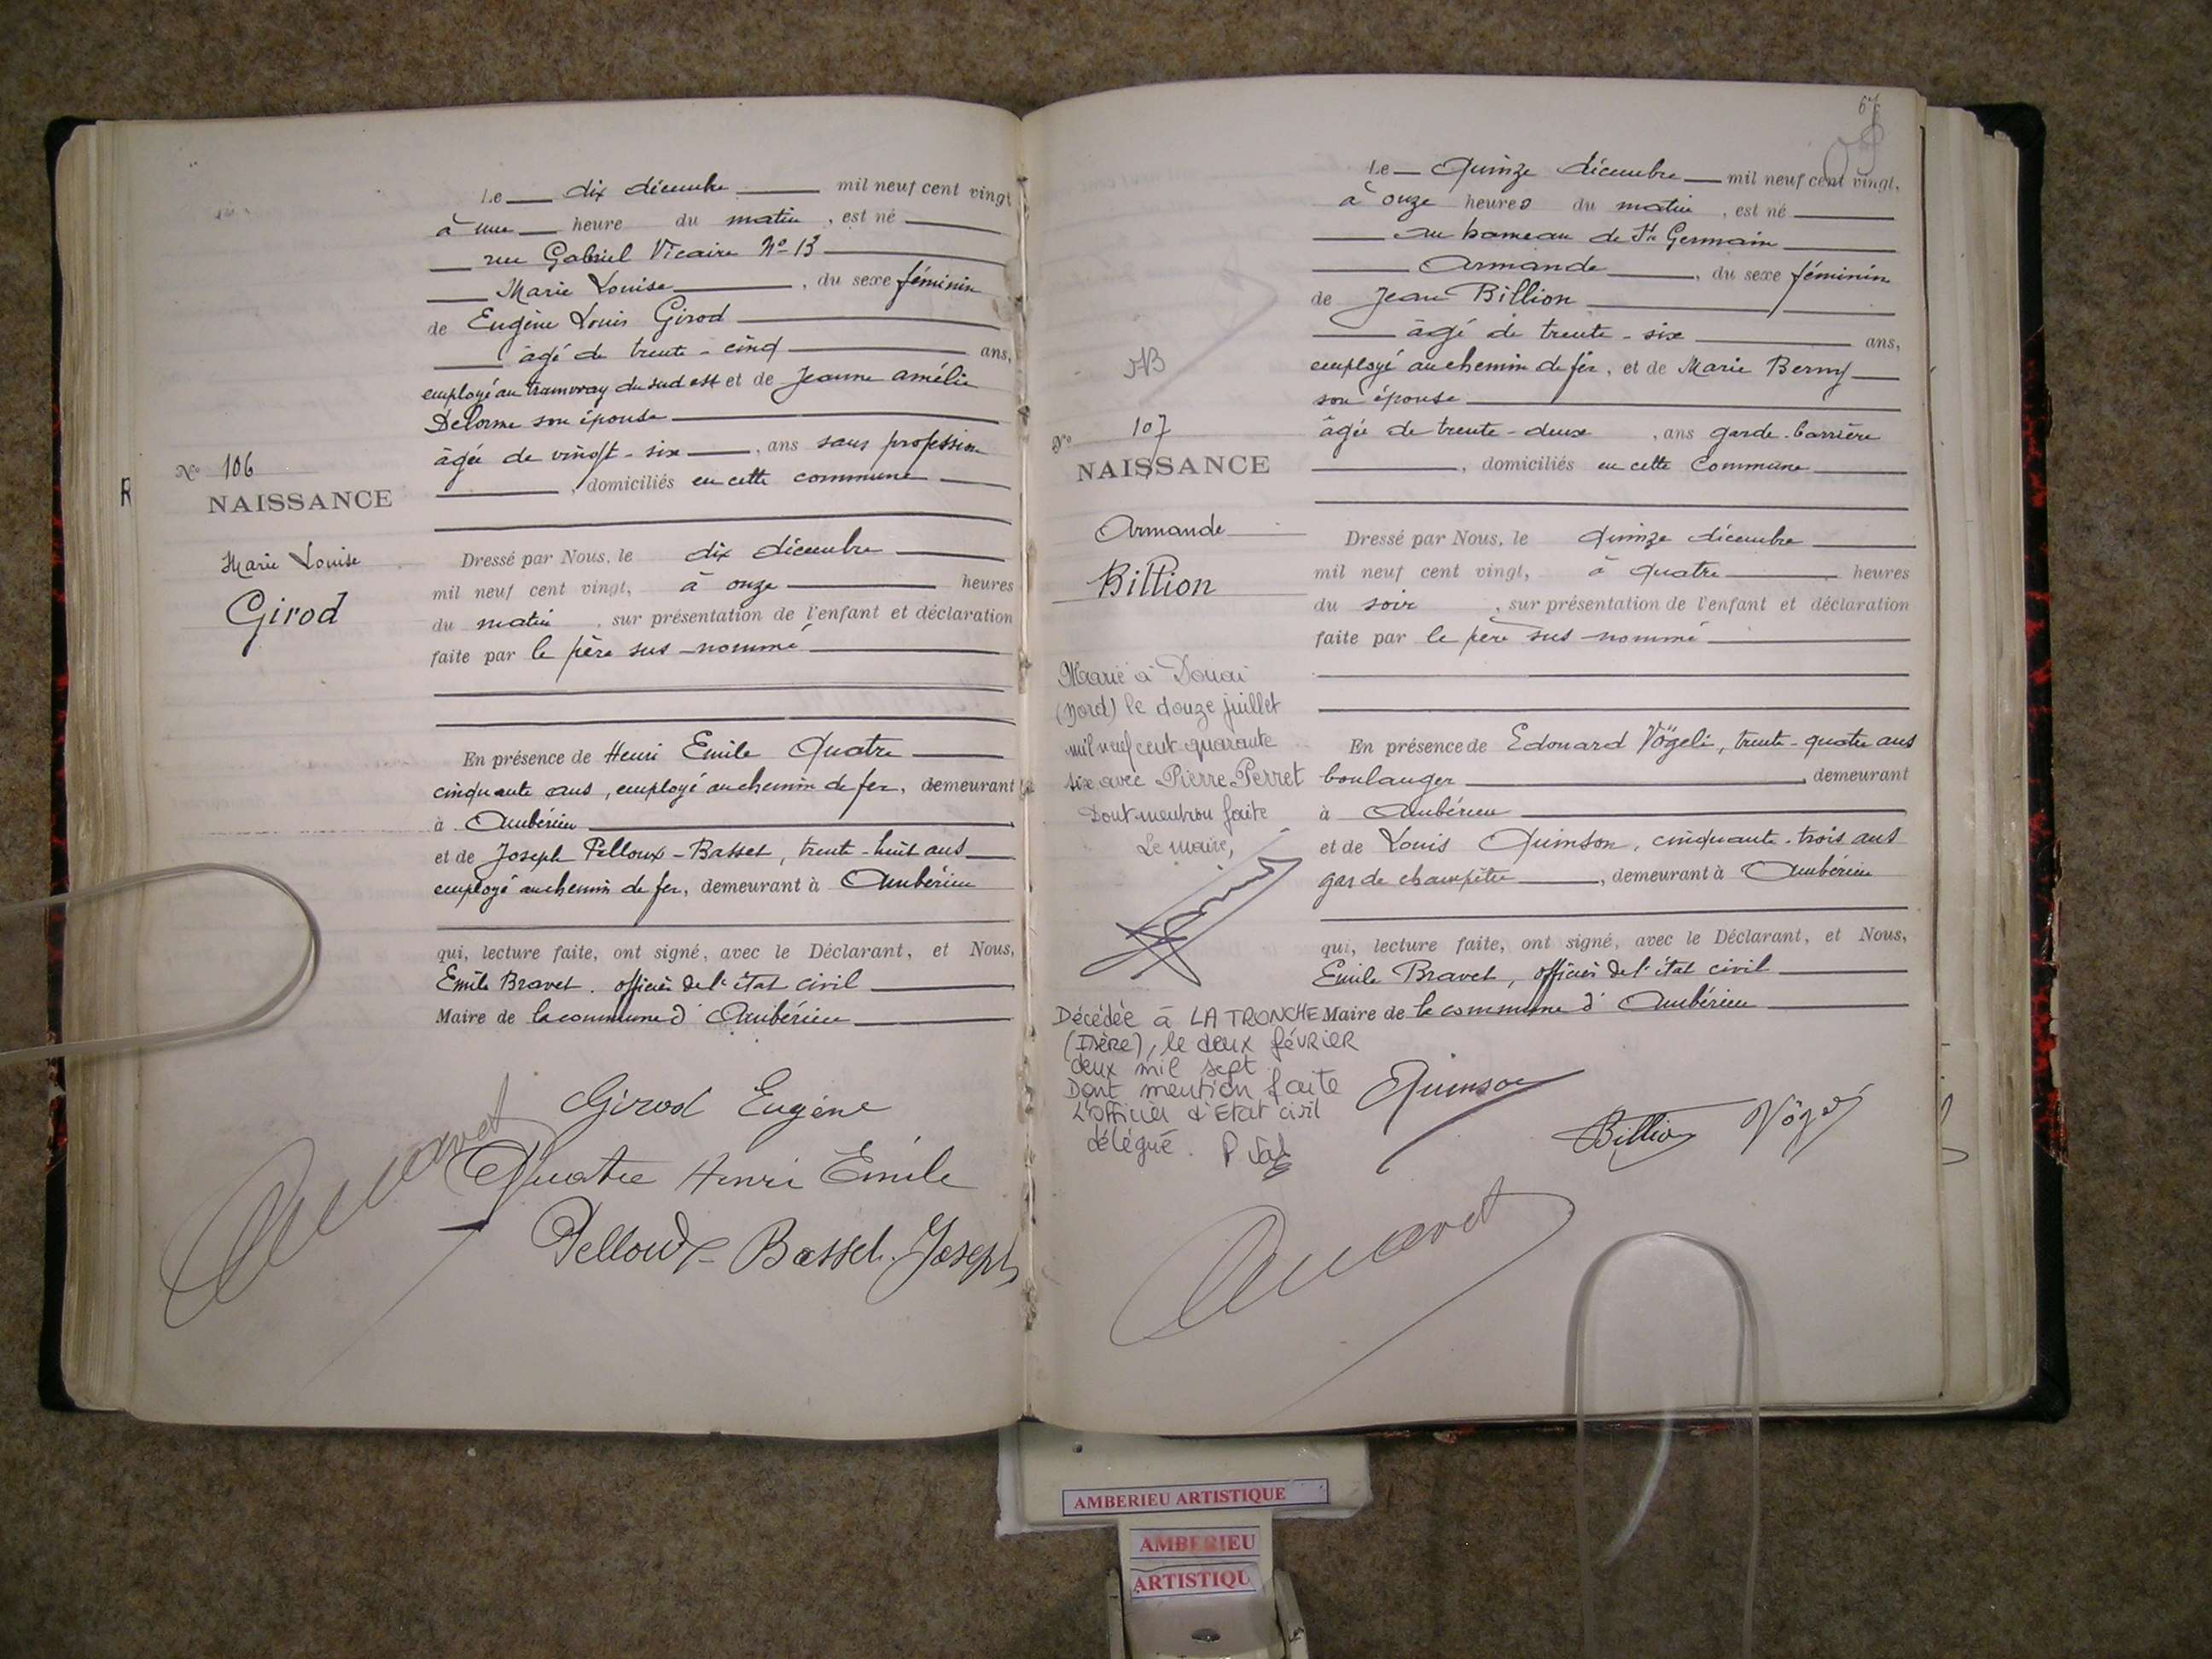 Le dix décembre mil neuf cent vingt
à une heure du matin, est né
rue Gabriel Vicaire No 13
Marie Louise, du sexe féminin
de Eugène Louis Girod
âgé de trente-cinq ans,
employé au tramway du sud est et de Jeanne Amélie
Delorme son épouse
âgée de vingt-six, ans sans profession
, domiciliés en cette commune
R
No 106
NAISSANCE
Marie Louise
Girod
Dressé par Nous, le dix décembre
mil neuf cent vingt, à onze heures
du matin, sur présentation de l'enfant et déclaration
faite par le père sus-nommé
En présence de Henri Emile Quatre
cinquante ans, employé au chemin de fer, demeurant
à Ambérieu
et de Joseph Pelloux-Basset, trente-huit ans
employé au chemin de fer, demeurant à Ambérieu
qui, lecture faite, ont signé, avec le Déclarant, et Nous,
Emile Bravet, officier de l'état civil
Maire de la commune d'Ambérieu
Girod Eugène
Quatre Henri Emile
Pelloux-Basset Joseph
67
Le Quinze décembre mil neuf cent vingt,
à onze heures du matin, est né
au hameau de St Germain
Armande, du sexe féminin
de Jean Billion
âgé de trente-six ans,
employé au chemin de fer, et de Marie Berny
son épouse
âgée de trente-deux, ans garde-barrière
, domiciliés en cette commune
No 107
NAISSANCE
Armande
Billion
Dressé par Nous, le quinze décembre
mil neuf cent vingt, à quatre heures
du soir, sur présentation de l'enfant et déclaration
faite par le père sus-nommé
Marié à Douai
(Nord) le douze juillet
mil neuf cent quarante
six avec Pierre Perret
Dont mention faite
Le maire,
En présence de Edouard Vögeli, trente-quatre ans
boulanger, demeurant
à Ambérieu
et de Louis Quinson, cinquante-trois ans
garde champêtre, demeurant à Ambérieu
qui, lecture faite, ont signé, avec le Déclarant, et Nous,
Emile Bravet, officier de l'état civil
Maire de la commune d'Ambérieu
Décédée à LA TRONCHE
(Isère), le deux février
deux mil sept
Dont mention faite
L'officier d'Etat civil
délégué.
Quinson
Billion
AMBERIEU ARTISTIQUE
AMBERIEU
ARTISTIQU